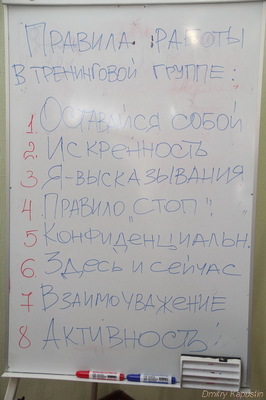 Правила работы
в тренинговой группе:
1. Оставайся собой
2. Искренность
3 Я-высказывания
4 Правило „Стоп"!
5 Конфиденциальн.
6. Здесь и сейчас
7 Взаимоуважение
8 Активность
Dmitry Kapustin